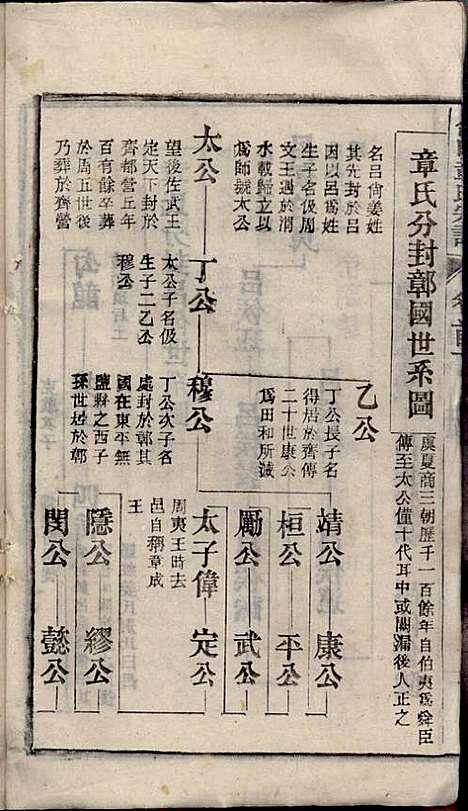 章氏分封鄣國世系圖
虞夏商三朝歷千一百餘年自伯夷爲舜臣
傳至太公僅十代耳中或闕漏後人正之
太公
名呂尚姜姓
其先封於呂
因以呂爲姓
生子名伋周
文王遇於渭
水載歸立以
爲師號太公
望後佐武王
定天下封於
齊都營丘年
百有餘卒葬
於周五世後
乃葬於齊營
丁公
太公子名伋
生子二乙公
穆公
乙公
丁公長子名
得居於齊傳
二十世康公
爲田和所滅
穆公
丁公次子名
虔封於鄣其
國在東平無
鹽縣之西子
孫世居於鄣
靖公
康公
桓公
平公
厲公
武公
太子偉
定公
周夷王時去
邑自稱章成
王
隱公
繆公
閔公
懿公